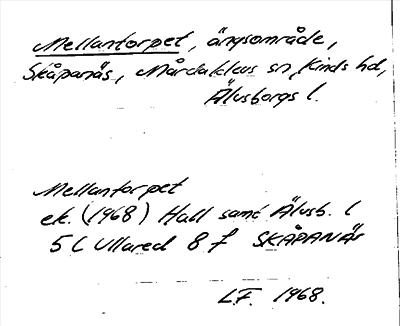 Mellantorpet, ängsområde,
Skåpanäs, Mårdaklevs sn, Kinds hd,
Älvsborgs l.
Mellantorpet
ek. (1968) Hall samt Älvsb. l
5 C Ullared 8 f SKÅPANÄS
L.F. 1968.